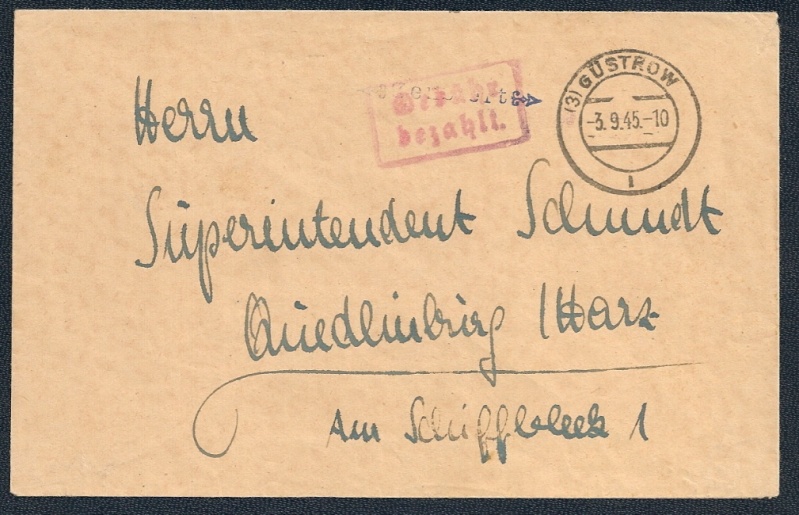 Gebühr
bezahlt.
(3) GÜSTROW
-3.9.45.-10
1
Herrn
Superintendent Schmidt
Quedlinburg / Harz
Am Schiffbleek 1